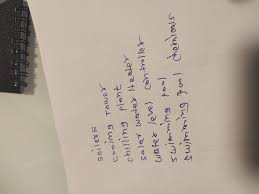 soilers
cooling tower
chilling plant
solar water Heater
water level controller
swimming pool
swimming pool chemicals